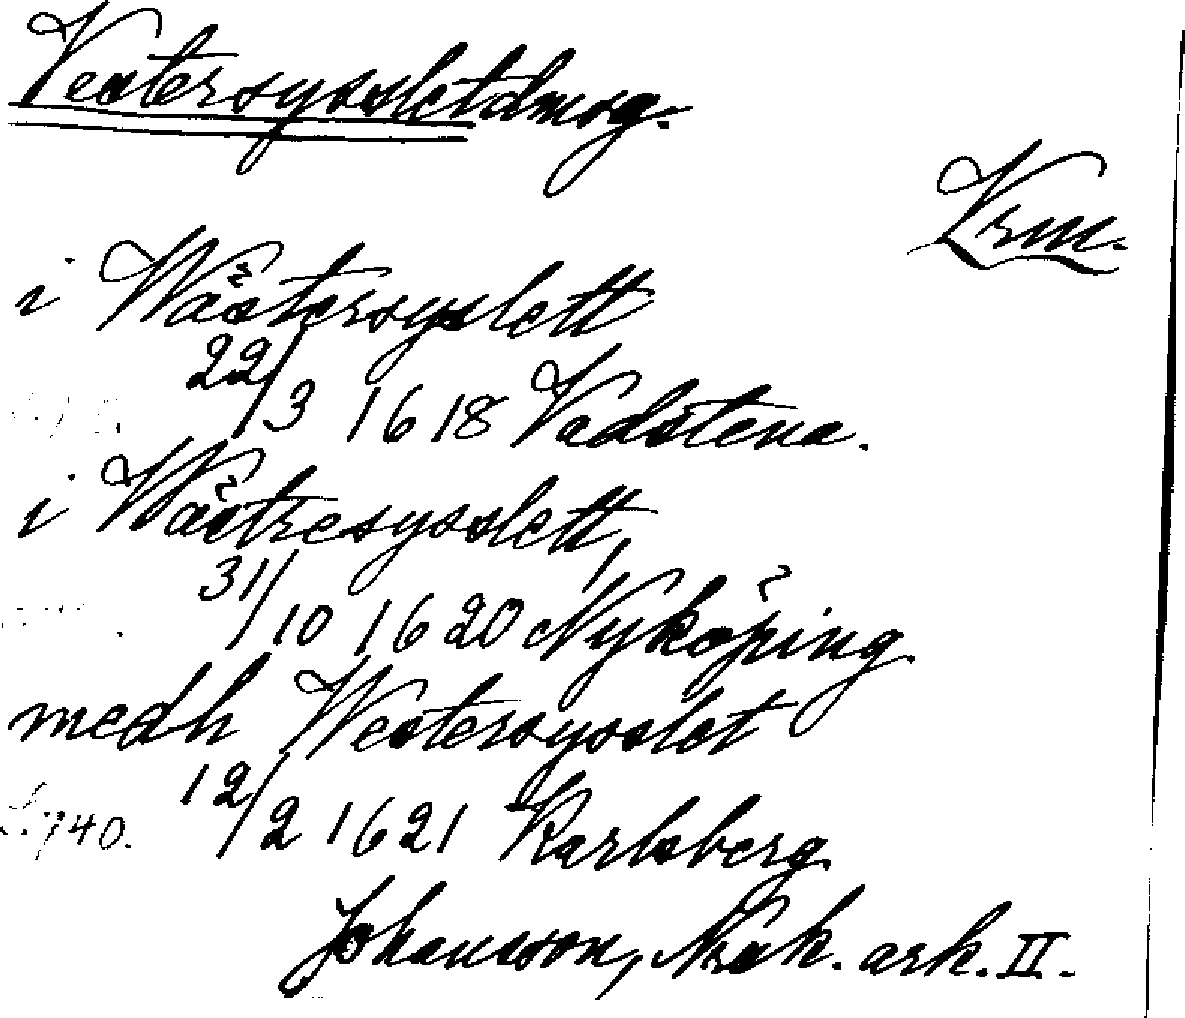 Vestersysslet dmsg.
Vrm.
i Wästersyslett
22/3 1618 Vadstena.
i Wästresysslett,
31/10 1620 Nyköping
medh Westersysslet
12/2 1621 Karlsberg
740.
Johansson, Nrak. ark. II.